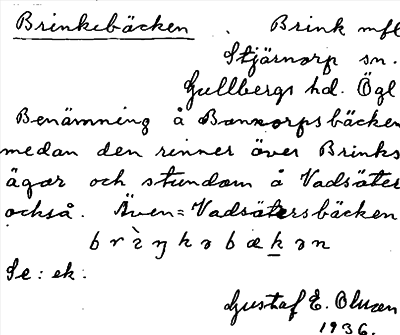 Brinkebäcken    Brink mfl
Stjärnorp sn.
Gullbergs hd. Ögl
Benämning å Banorpsbäcken
medan den rinner över Brinks
ägor och stundom å Vadsäter
också. Även = Vadsätersbäcken
brìŋkəbækən
Se: ek:
Gustaf E. Olsson
1936.